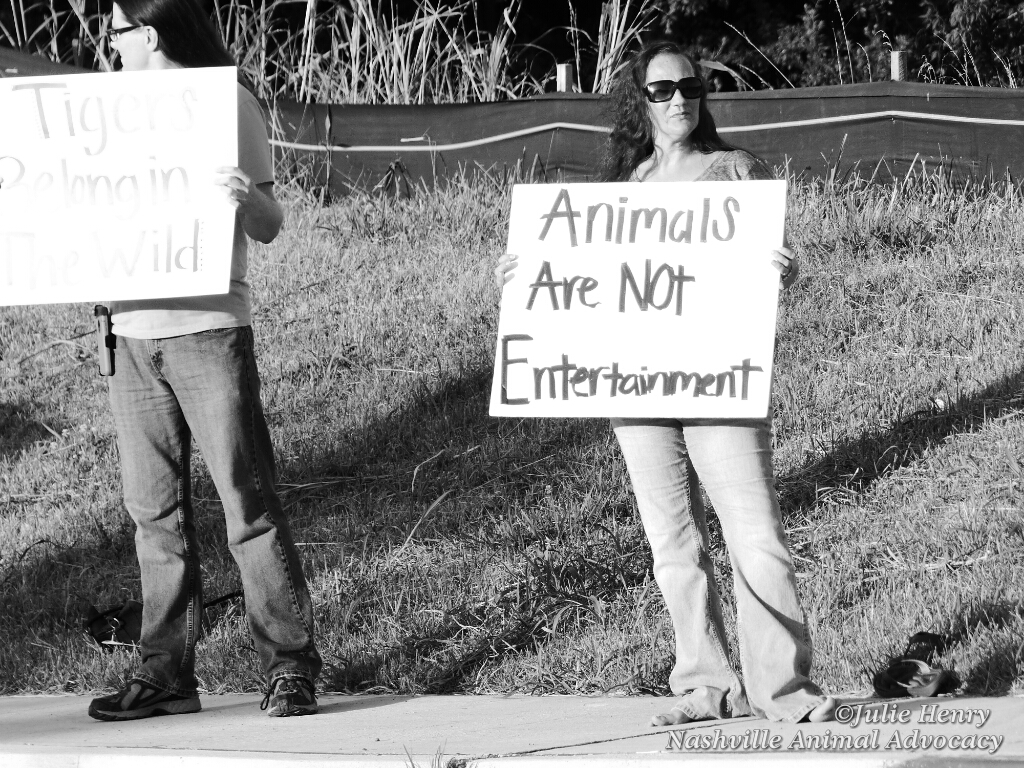 Tigers
Belong in
The Wild!
Animals
Are NOt
Entertainment
©Julie Henry
Nashville Animal Advocacy